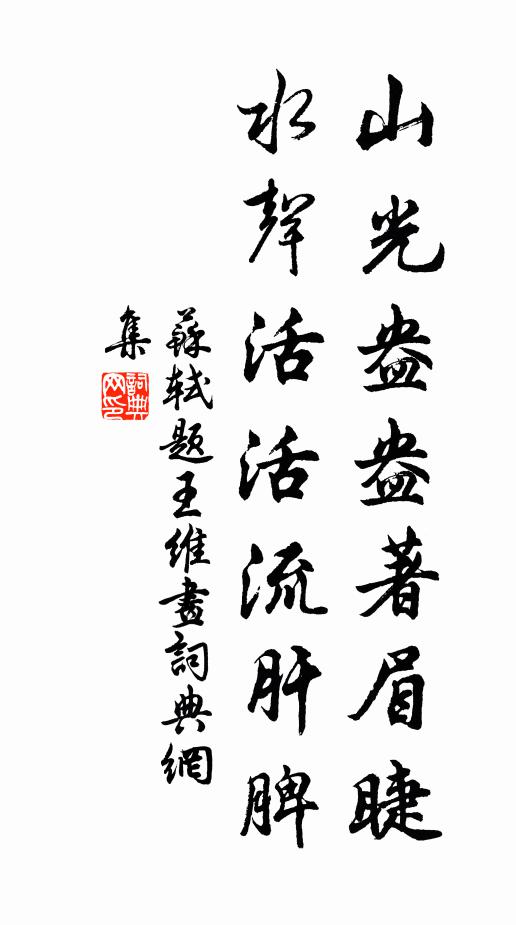 山光盎盎著眉睫
水聲活活流肝脾
蘇軾题王維畫詞典網
集
詞典网印